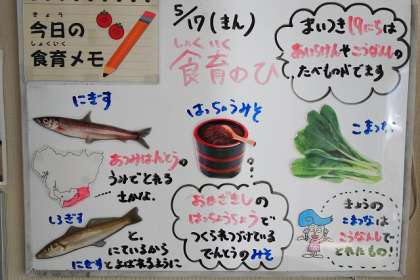 きょう
今日の
しょくいく
食育メモ
5/17(まん)
しょく いく
食育のひ
まいつき19にちは
あいちけんやこうなんしの
たべものがでます
にぎす
あつみはんとうの
うみでとれる
さかなよ。
しろぎす
と、
にているから
にぎすとよばれるように
はっちょうみそ
おかざきしの
はっちょうちょうで
つくられつづけている
でんとうのみそ
こまつな
きょうの
こまつなは
こうなんしで
とれたもの!